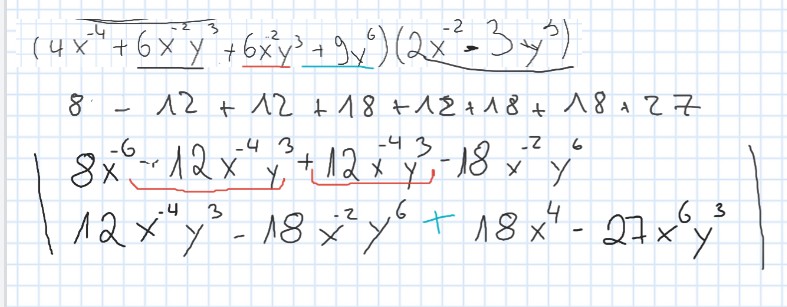 (4x⁻⁴ + 6x⁻²y³ + 6x⁻²y³ + 9y⁶)(2x⁻² - 3y³)
8 - 12 + 12 + 18 + 12 + 18 + 18 . 27
8x⁻⁶ - 12x⁻⁴y³ + 12x⁻⁴y³ - 18x⁻²y⁶
12x⁻⁴y³ - 18x⁻²y⁶ + 18x⁴ - 27x⁶y³